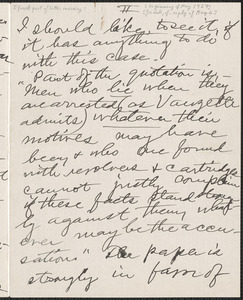 I should like to see it, if
it has anything to do
with this case.
"Part of the quotation is,
"Men who lie when they
are arrested as Vanzetti
admits, whatever their
motives may have
been, & who are found
with revolvers & cartridges
cannot justly complain
if these facts stand strong-
ly against them, what
ever may be the accu-
sation." The paper is
strongly in favor of